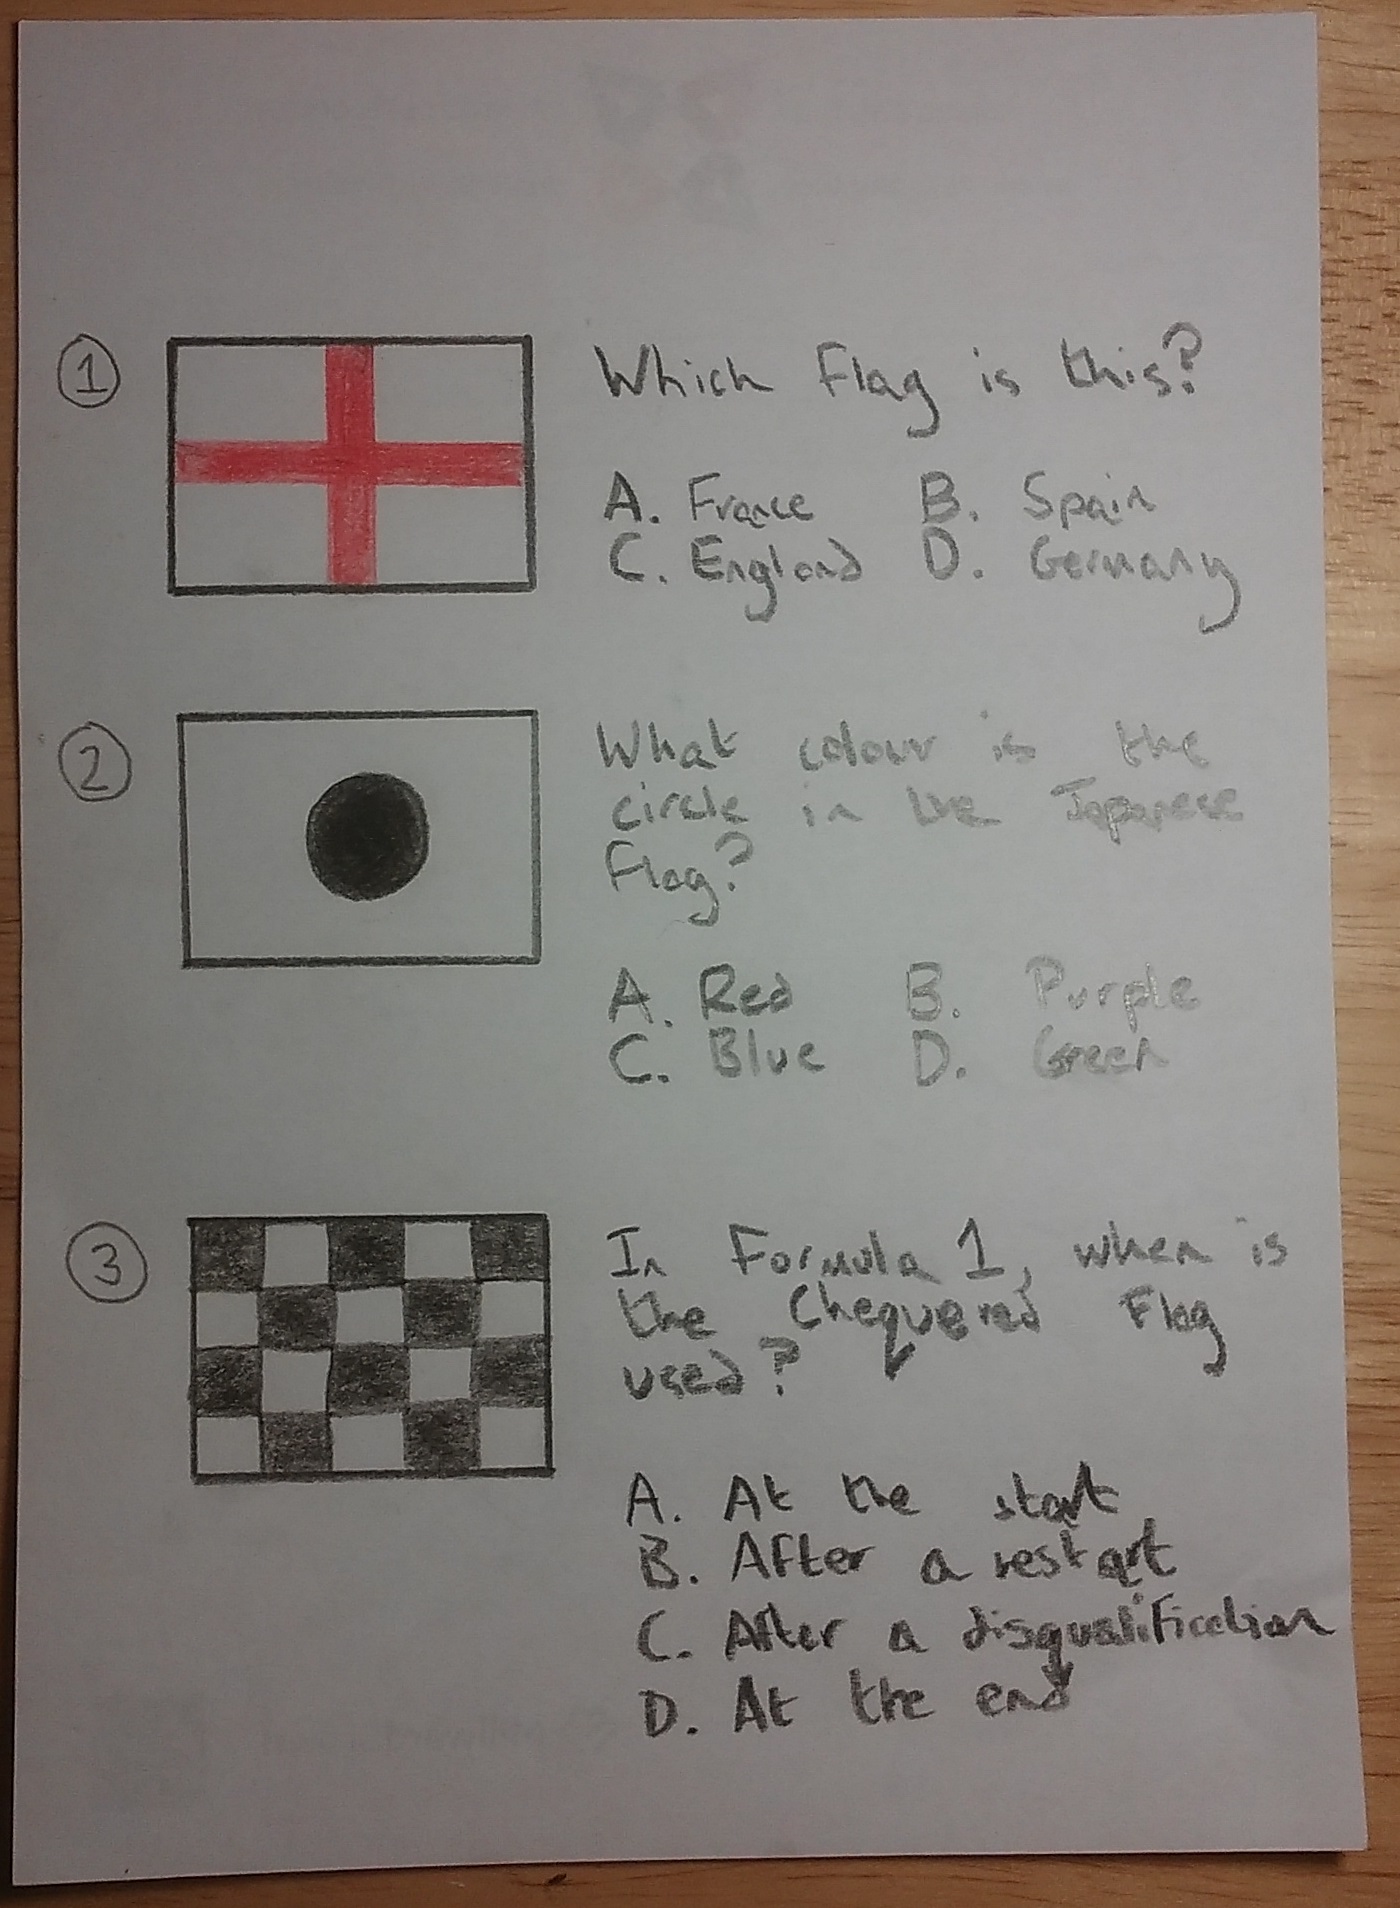 1 Which Flag is this?
A. France B. Spain
C. England D. Germany
2 What colour is the
circle in the Japanese
Flag?
A. Red B. Purple
C. Blue D. Green
3 In Formula 1, when is
the Chequered Flag
used?
A. At the start
B. After a restart
C. After a disqualification
D. At the end